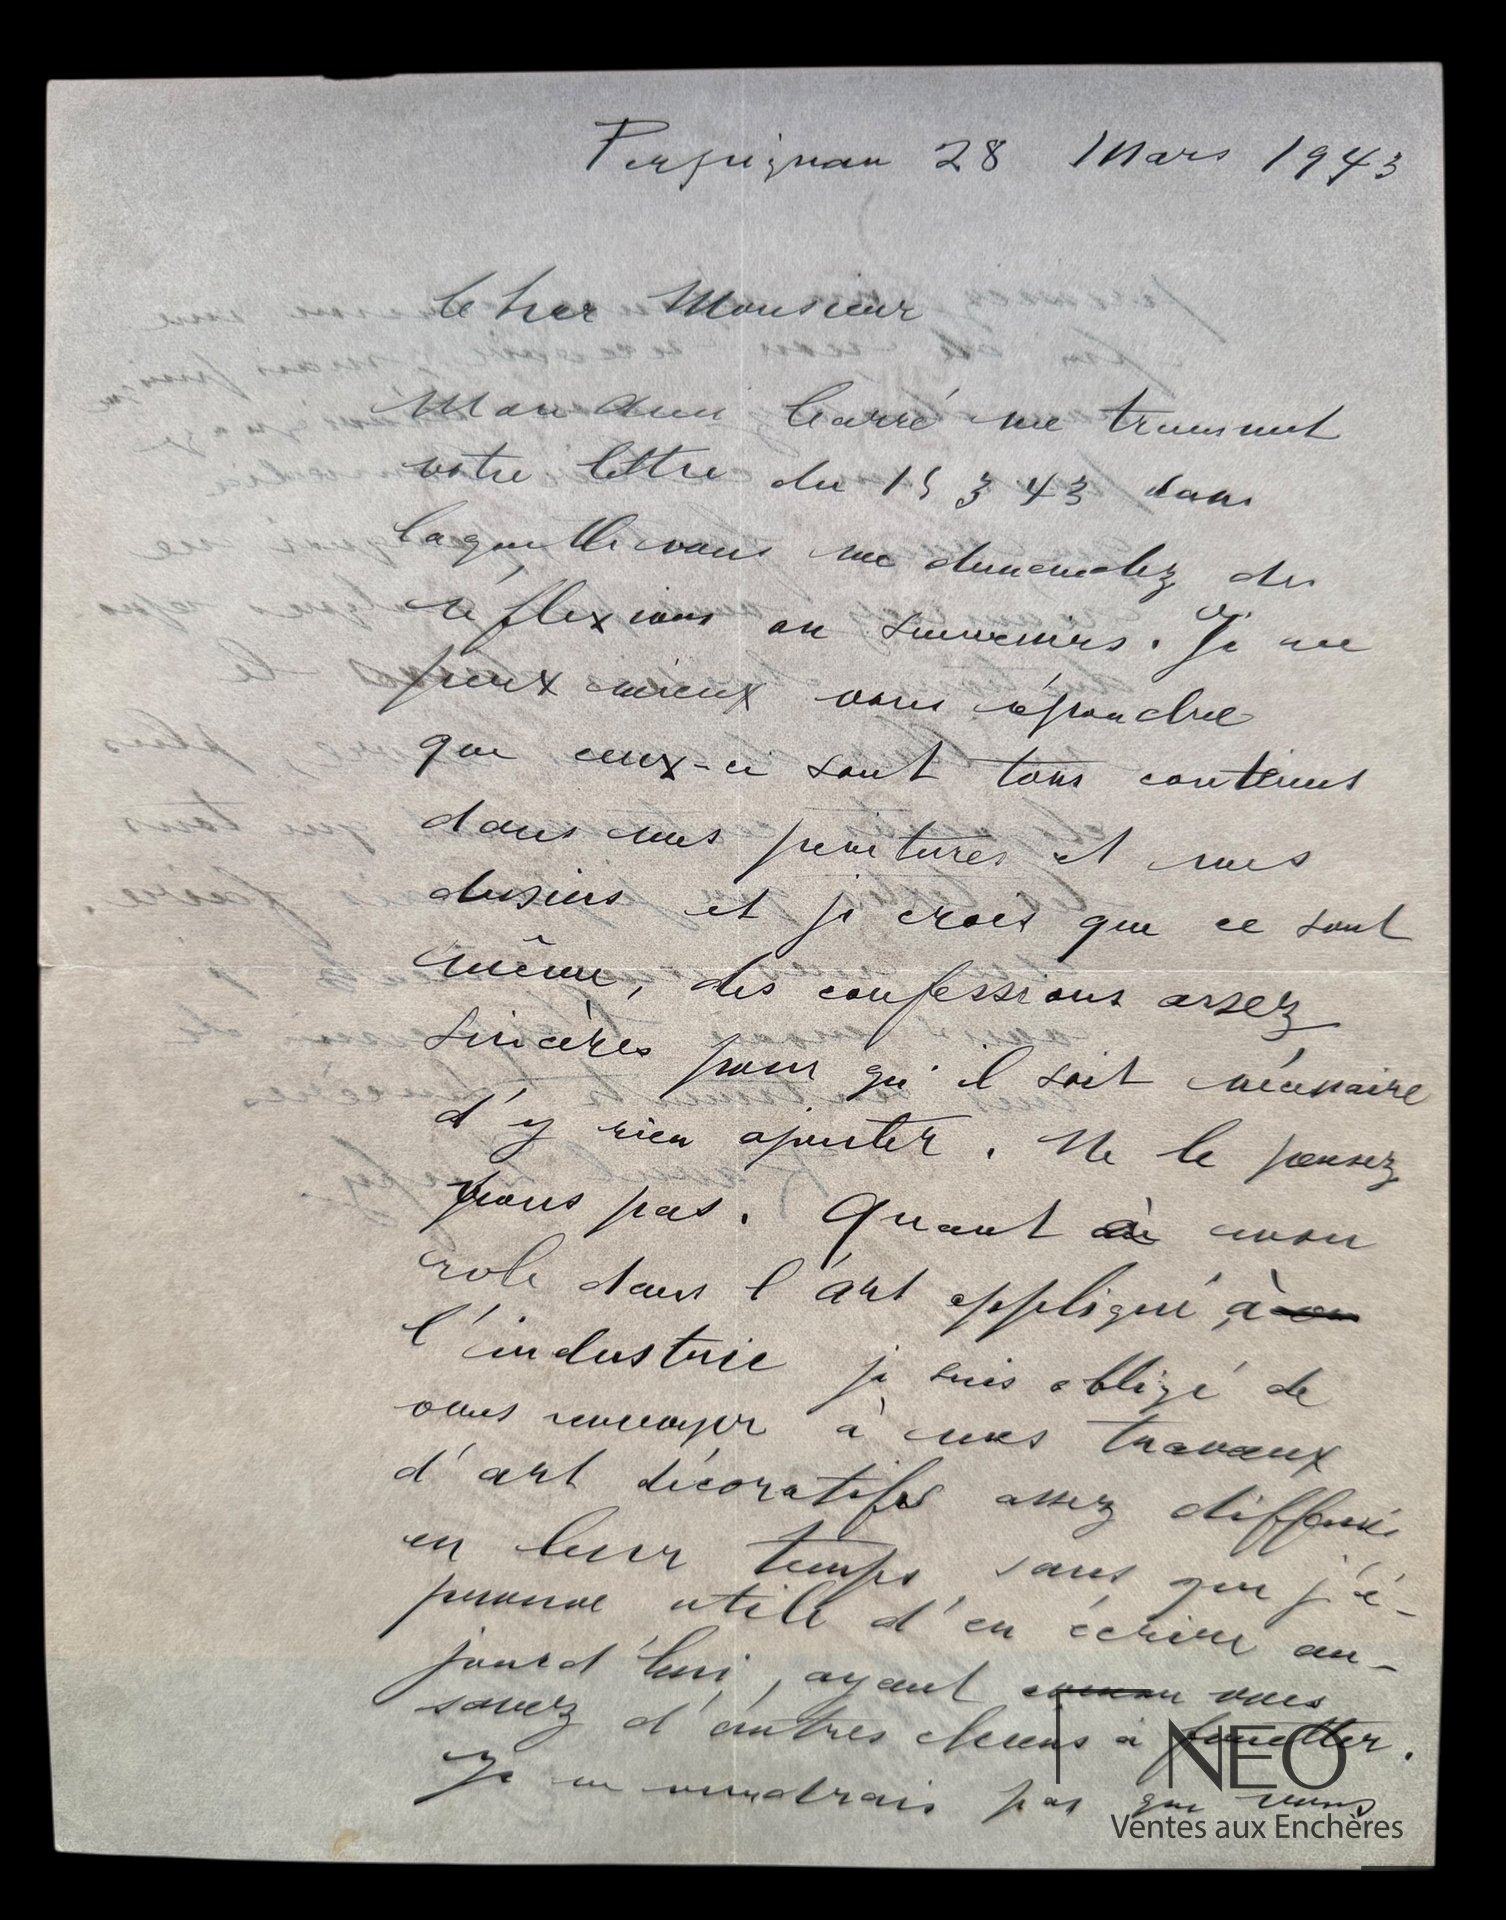 Perpignan 28 Mars 1943
Cher Monsieur
Mon ami Carré me transmet
votre lettre du 15 3 43 dans
laquelle vous me demandez des
réflexions ou souvenirs. Je ne
peux mieux vous répondre
que ceux-ci sont tous contenus
dans mes peintures et mes
dessins et je crois que ce sont
même, des confessions assez
sincères pour qu'il soit nécessaire
d'y rien ajouter. Ne le pensez
vous pas. Quant à mon
role dans l'art appliqué à
l'industrie je suis obligé de
vous renvoyer à mes travaux
d'art décoratifs assez diffusés
en leur temps sans que j'é-
prouve utile d'en écrire au-
jourd'hui, ayant vous
savez d'autres chiens à fouetter.
Je ne voudrais pas que vous
NEO
Ventes aux Enchères